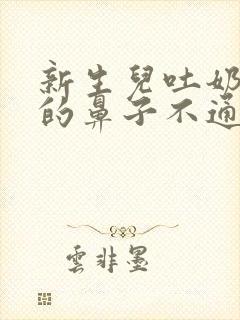 新生兒吐奶
的鼻子不通
雲非墨